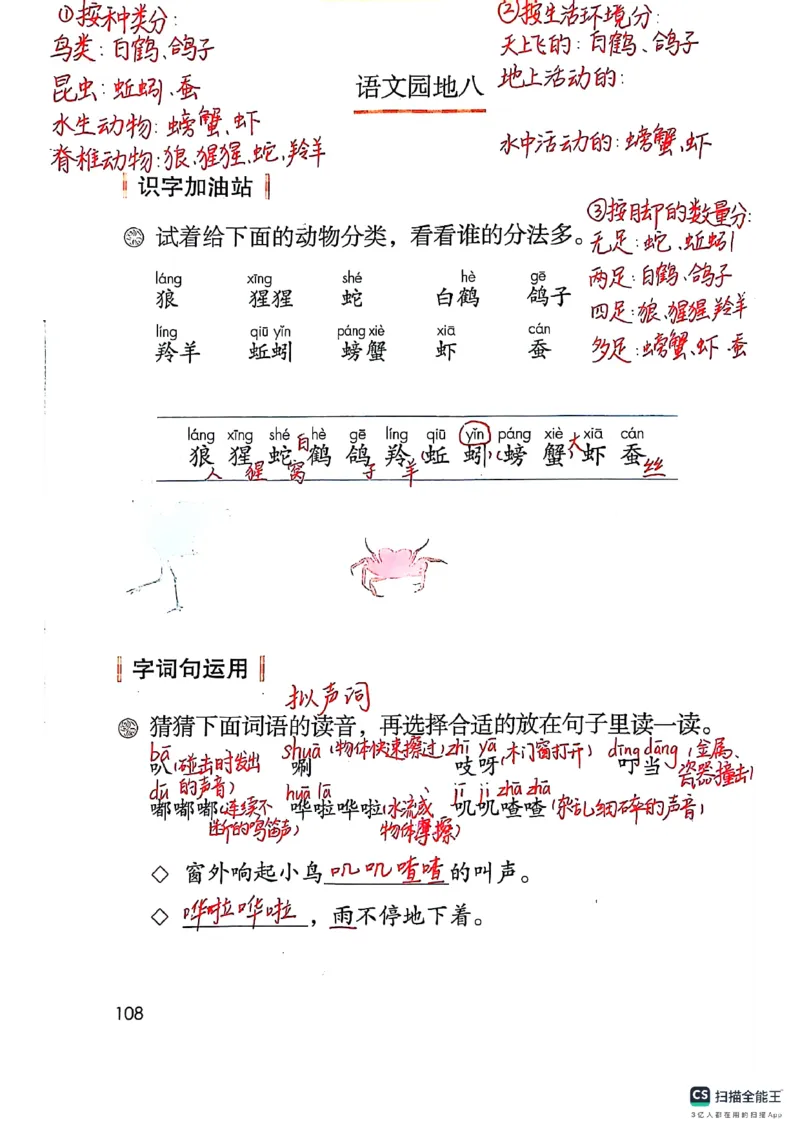 ①按种类分:
鸟类:白鹤、鸽子
昆虫:蚯蚓、蚕
水生动物:螃蟹、虾
脊椎动物:狼、猩猩、蛇、羚羊
②按生活环境分:
天上飞的:白鹤、鸽子
地上活动的:
水中活动的:螃蟹、虾
语文园地八
③按脚的数量分:
无足:蛇、蚯蚓
两足:白鹤、鸽子
四足:狼、猩猩、羚羊
多足:螃蟹、虾、蚕
识字加油站
试着给下面的动物分类,看看谁的分法多。
láng xīng shé hè gē
狼 猩猩 蛇 白鹤 鸽子
líng qiū yǐn páng xiè xiā cán
羚羊 蚯蚓 螃蟹 虾 蚕
láng xīng shé hè gē líng qiū yǐn páng xiè xiā cán
狼 猩 蛇 白鹤 鸽 羚 (蚯 蚓) (螃 蟹) 大虾 蚕
人 猩 窝 子 羊 丝
字词句运用
拟声词
猜猜下面词语的读音,再选择合适的放在句子里读一读。
bā shuā (物体快速擦过) zhī yā (木门窗打开) dīng dāng (金属、
叭 (碰击时发出 唰 吱呀 叮当 瓷器撞击)
的声音)
dū huā lā jī jī zhā zhā
嘟嘟嘟 (连续不 哗啦哗啦 (水流或 叽叽喳喳 (杂乱细碎的声音)
断的鸣笛声) 物体摩擦)
◇ 窗外响起小鸟叽叽喳喳的叫声。
◇ 哗啦哗啦,雨不停地下着。
108
CS 扫描全能王
3亿人都在用的扫描App